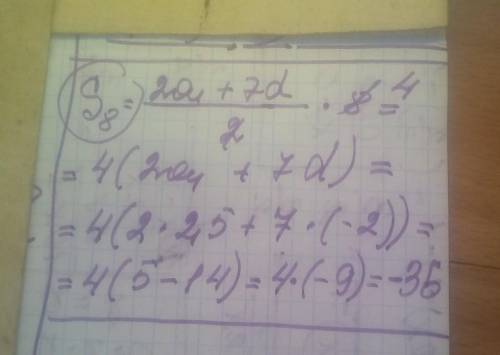 S₈ = (2a₁ + 7d)/2 · 8 = 4
= 4(2a₁ + 7d) =
= 4(2·2,5 + 7·(-2)) =
= 4(5 - 14) = 4·(-9) = -36